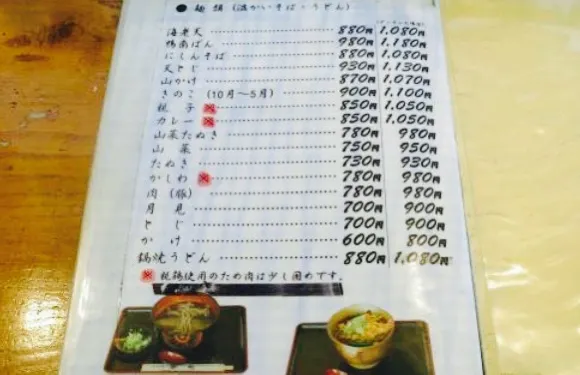 ● 麺類（温かいそば・うどん）
海老天 880円 1,080円
鴨南ばん 980円 1,180円
にしんそば 880円 1,080円
天とじ 930円 1,130円
山かけ 870円 1,070円
きのこ（10月～5月） 900円 1,100円
親子※ 850円 1,050円
カレー※ 850円 1,050円
山菜たぬき 780円 980円
山菜 750円 950円
たぬき 730円 930円
かしわ※ 780円 980円
肉（豚） 780円 980円
月見 700円 900円
とじ 700円 900円
かけ 600円 800円
鍋焼うどん 880円 1,080円
※ 親鶏使用のため肉は少し固めです。